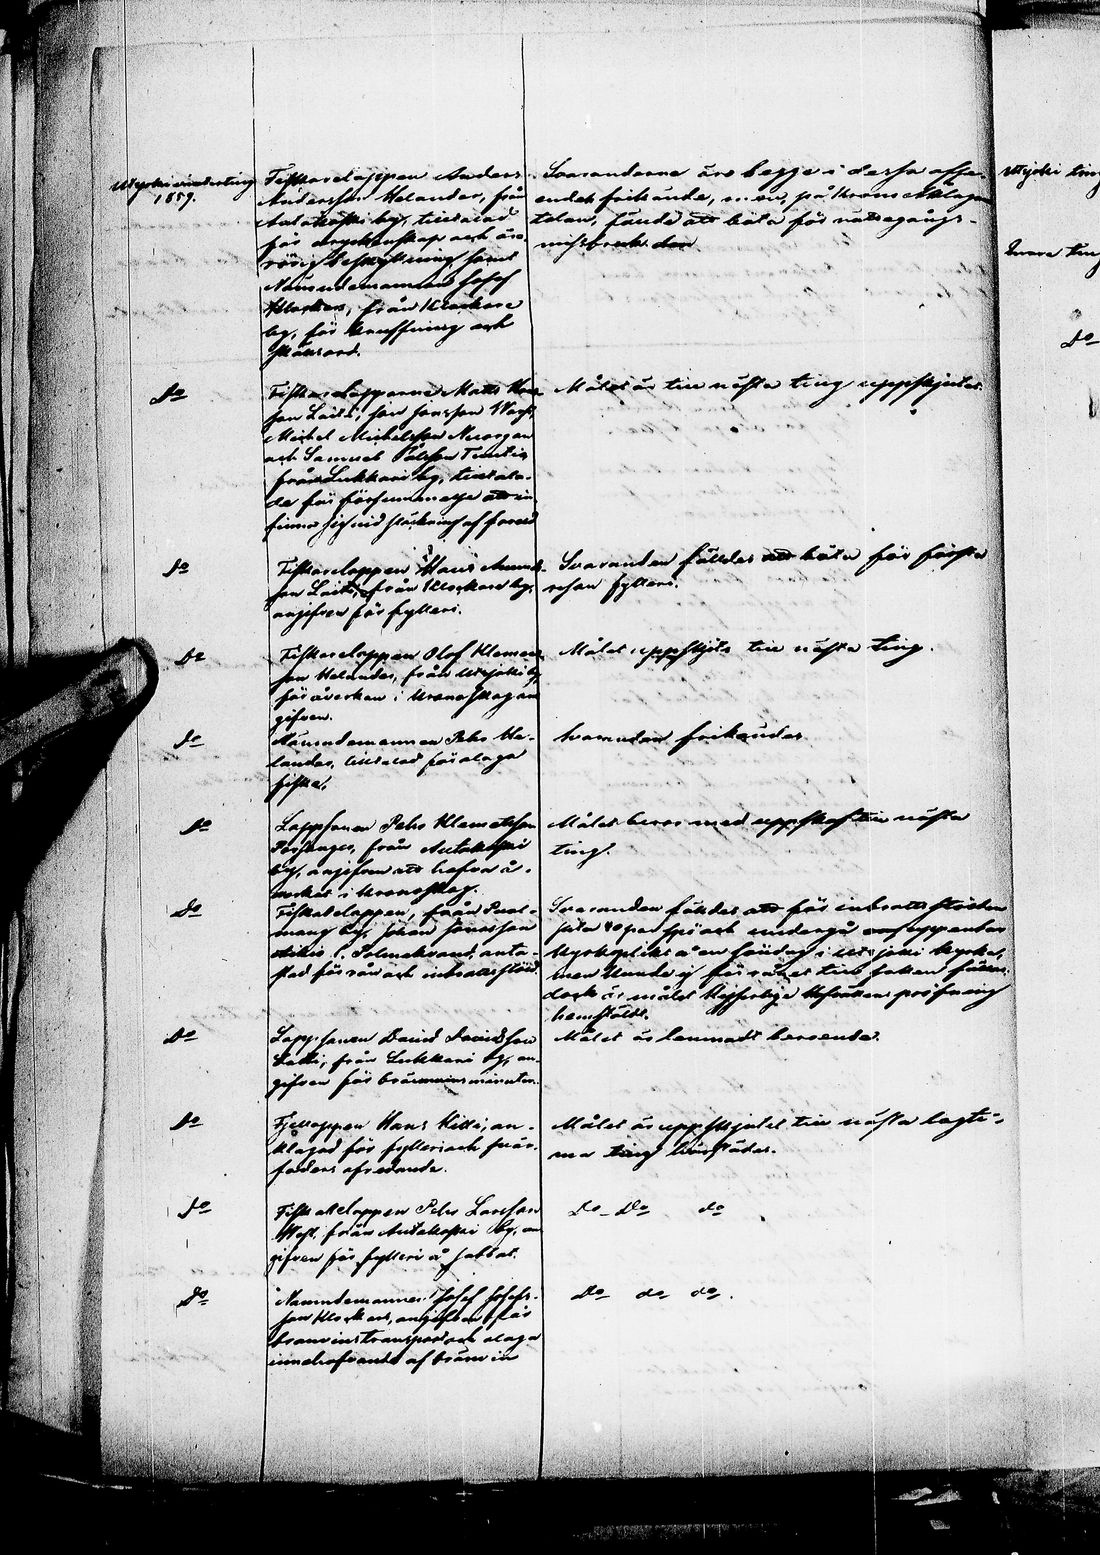 Utsjoki vinterting
1859.
Fiskarelappen Anders
Andersson Helander, från
Outakoski by, tilltalad
för dryckenskap och
samt
Nämndemannen Josef
Klockare, från Klockare
by, för
skällsord.
Svaranderne äro begge i dessa afse-
enden frikände, men, på Krono Åklaga-
retalan, fände att böta för rättegångs-
missbruk den
Do
Fiskarelapparne Matts Han-
son Laiti, Jon Jonsson West,
Michel Michelsson Nuorgam
och Samuel Pålsson
från by, tilltala-
de för försummelse att in-
finna sig vid släckning af
Målet är till nästa ting uppskjutet.
Do
Fiskarelappen Hans Amund-
son Laiti, från Klockare by,
angifven för fylleri.
Svaranden fälldes att böta för första
resan fylleri.
Do
Fiskarelappen Olof Klemens-
son Helander, från Utsjoki by,
för åverkan i Krono skog an-
gifven.
Målet uppskjöts till nästa ting.
Do
Nämndemannen Pehr He-
lander, tilltalad för olaga
fiske.
Svaranden frikändes.
Do
Lappsonen Pehr Klemetsson
Porsanger, från Outakoski
by, angifven att hafva å-
verkat i Kronoskog.
Målet beror med uppskof till nästa
ting.
Do
Fiskarelappen, från Puol-
mang by, Johan Jonsson
anta-
stad för rån och inbrottsstöld.
Svaranden fäldes att för inbrottsstölden
slita 40 par spö och undergå uppenbar
kyrkoplikt å en söndag i Utsjoki kyrka,
men kunde ej för rånet till saken fällas;
dock är målet Kejserliga Hofrättens pröfning
hemstäldt.
Do
Lappsonen David Davidsson
Laiti, från by, an-
gifven för bränvinsminuter.
Målet är lemnadt beroende.
Do
Fjellappen Hans Kitti, an-
klagad för fylleri och
faders ofredande.
Målet är uppskjutet till nästa lagti-
ma ting härstädes.
Do
Fiskarelappen Pehr Larsson
West, från Outakoski by, an-
gifven för fylleri å sabbat.
Do Do do
Do
Nämndemannen Josef Josefs-
son Klockare, angifven för
bränvinstransport och olaga
innehafvande af bränvin
Do do do.
Utsjoki ting
Enare ting
Do